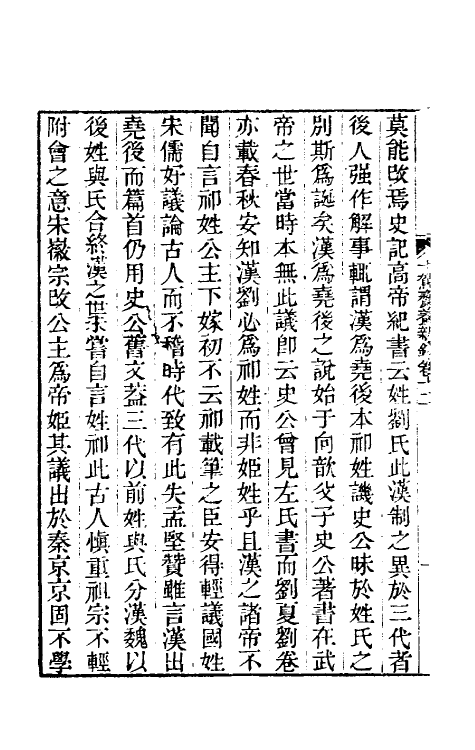 莫能改焉史記高帝紀書云姓劉氏此漢制之異於三代者
後人强作解事輒謂漢爲堯後本祁姓譏史公昧於姓氏之
別斯爲誕矣漢爲堯後之說始于向歆父子史公著書在武
帝之世當時本無此議卽云史公曾見左氏書而劉夏劉卷
亦載春秋安知漢劉必爲祁姓而非姬姓乎且漢之諸帝不
聞自言祁姓公主下嫁初不云祁載筆之臣安得輕議國姓
宋儒好議論古人而不稽時代致有此失孟堅贊雖言漢出
堯後而篇首仍用史公舊文葢三代以前姓與氏分漢魏以
後姓與氏合終漢之世未嘗自言姓祁此古人愼重祖宗不輕
附會之意宋徽宗改公主爲帝姬其議出於秦京京固不學